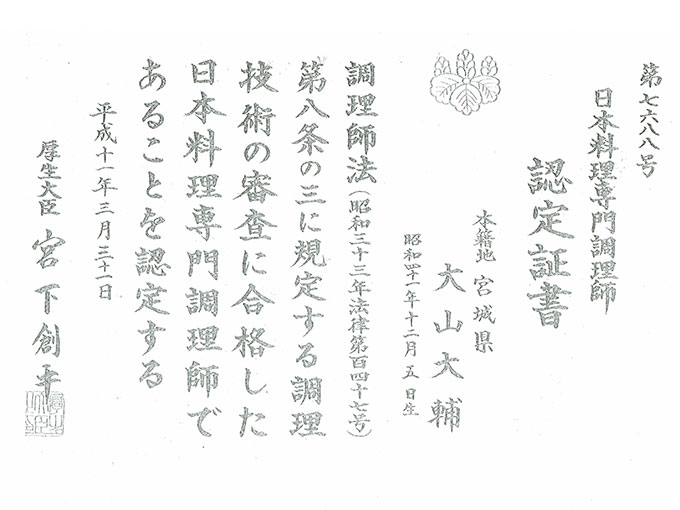 第七六八八号
日本料理専門調理師
認定証書
本籍地 宮城県
大山大輔
昭和四十一年十二月五日生
調理師法(昭和三十三年法律第百四十七号)
第八条の三に規定する調理
技術の審査に合格した
日本料理専門調理師で
あることを認定する
平成十一年三月三十一日
厚生大臣 宮下創平